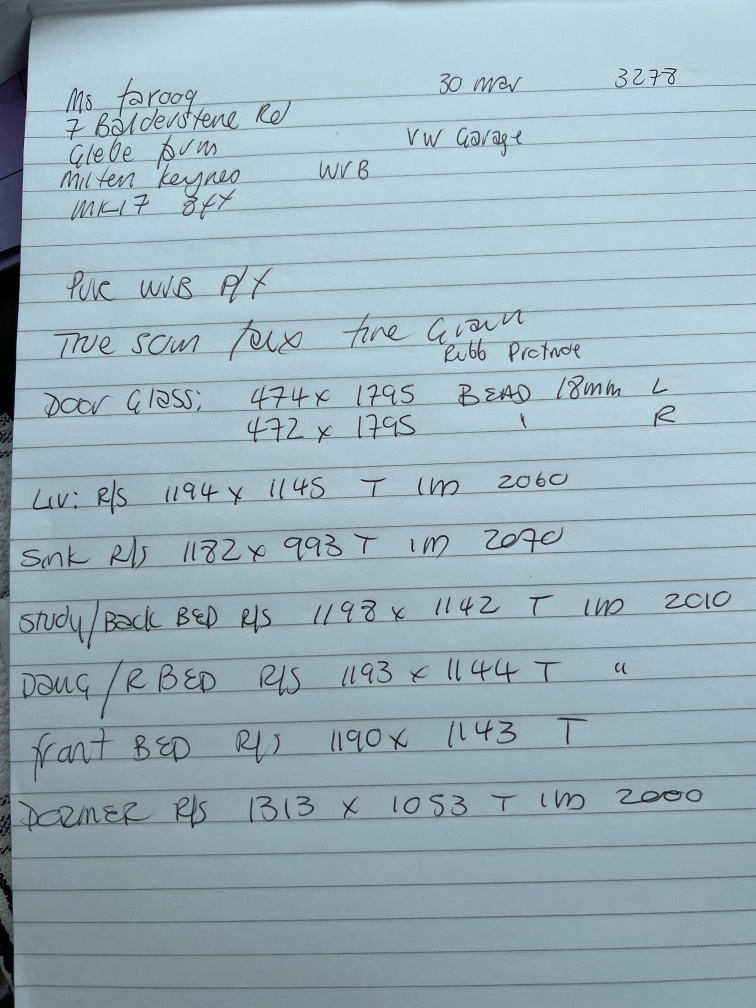 Ms farooq 30 mar 3278
7 Balderstene Rd
Glebe farm VW Garage
Milten Keynes WVB
MK17 8
Pure WVB P/F
True scan faux fine Grain
Rubb Protrude
DOOR Glass: 474 x 1795 BEAD 18mm L
472 x 1795 " R
LIV: R/S 1194 x 1145 T IM 2060
Sink R/S 1182 x 993 T IM 2070
Study/Back BED R/S 1198 x 1142 T IM 2010
Daug/R BED R/S 1193 x 1144 T "
front BED R/S 1190 x 1143 T
DORMER R/S 1313 x 1053 T IM 2000